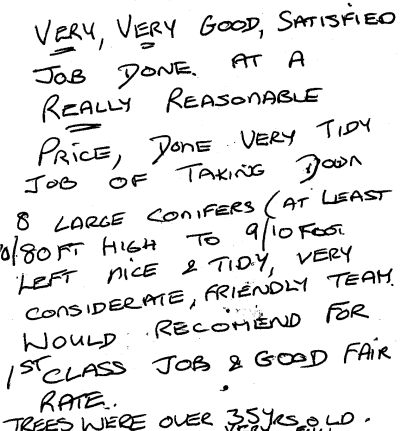 VERY, VERY GOOD, SATISFIED
JOB DONE. AT A
REALLY REASONABLE
PRICE, DONE VERY TIDY
JOB OF TAKING DOWN
8 LARGE CONIFERS (AT LEAST
0/80FT HIGH TO 9/10 FOOT
LEFT NICE & TIDY, VERY
CONSIDERATE, FRIENDLY TEAM.
WOULD RECOMEND FOR
1ST CLASS JOB & GOOD FAIR
RATE.
TREES WERE OVER 35YRS OLD.